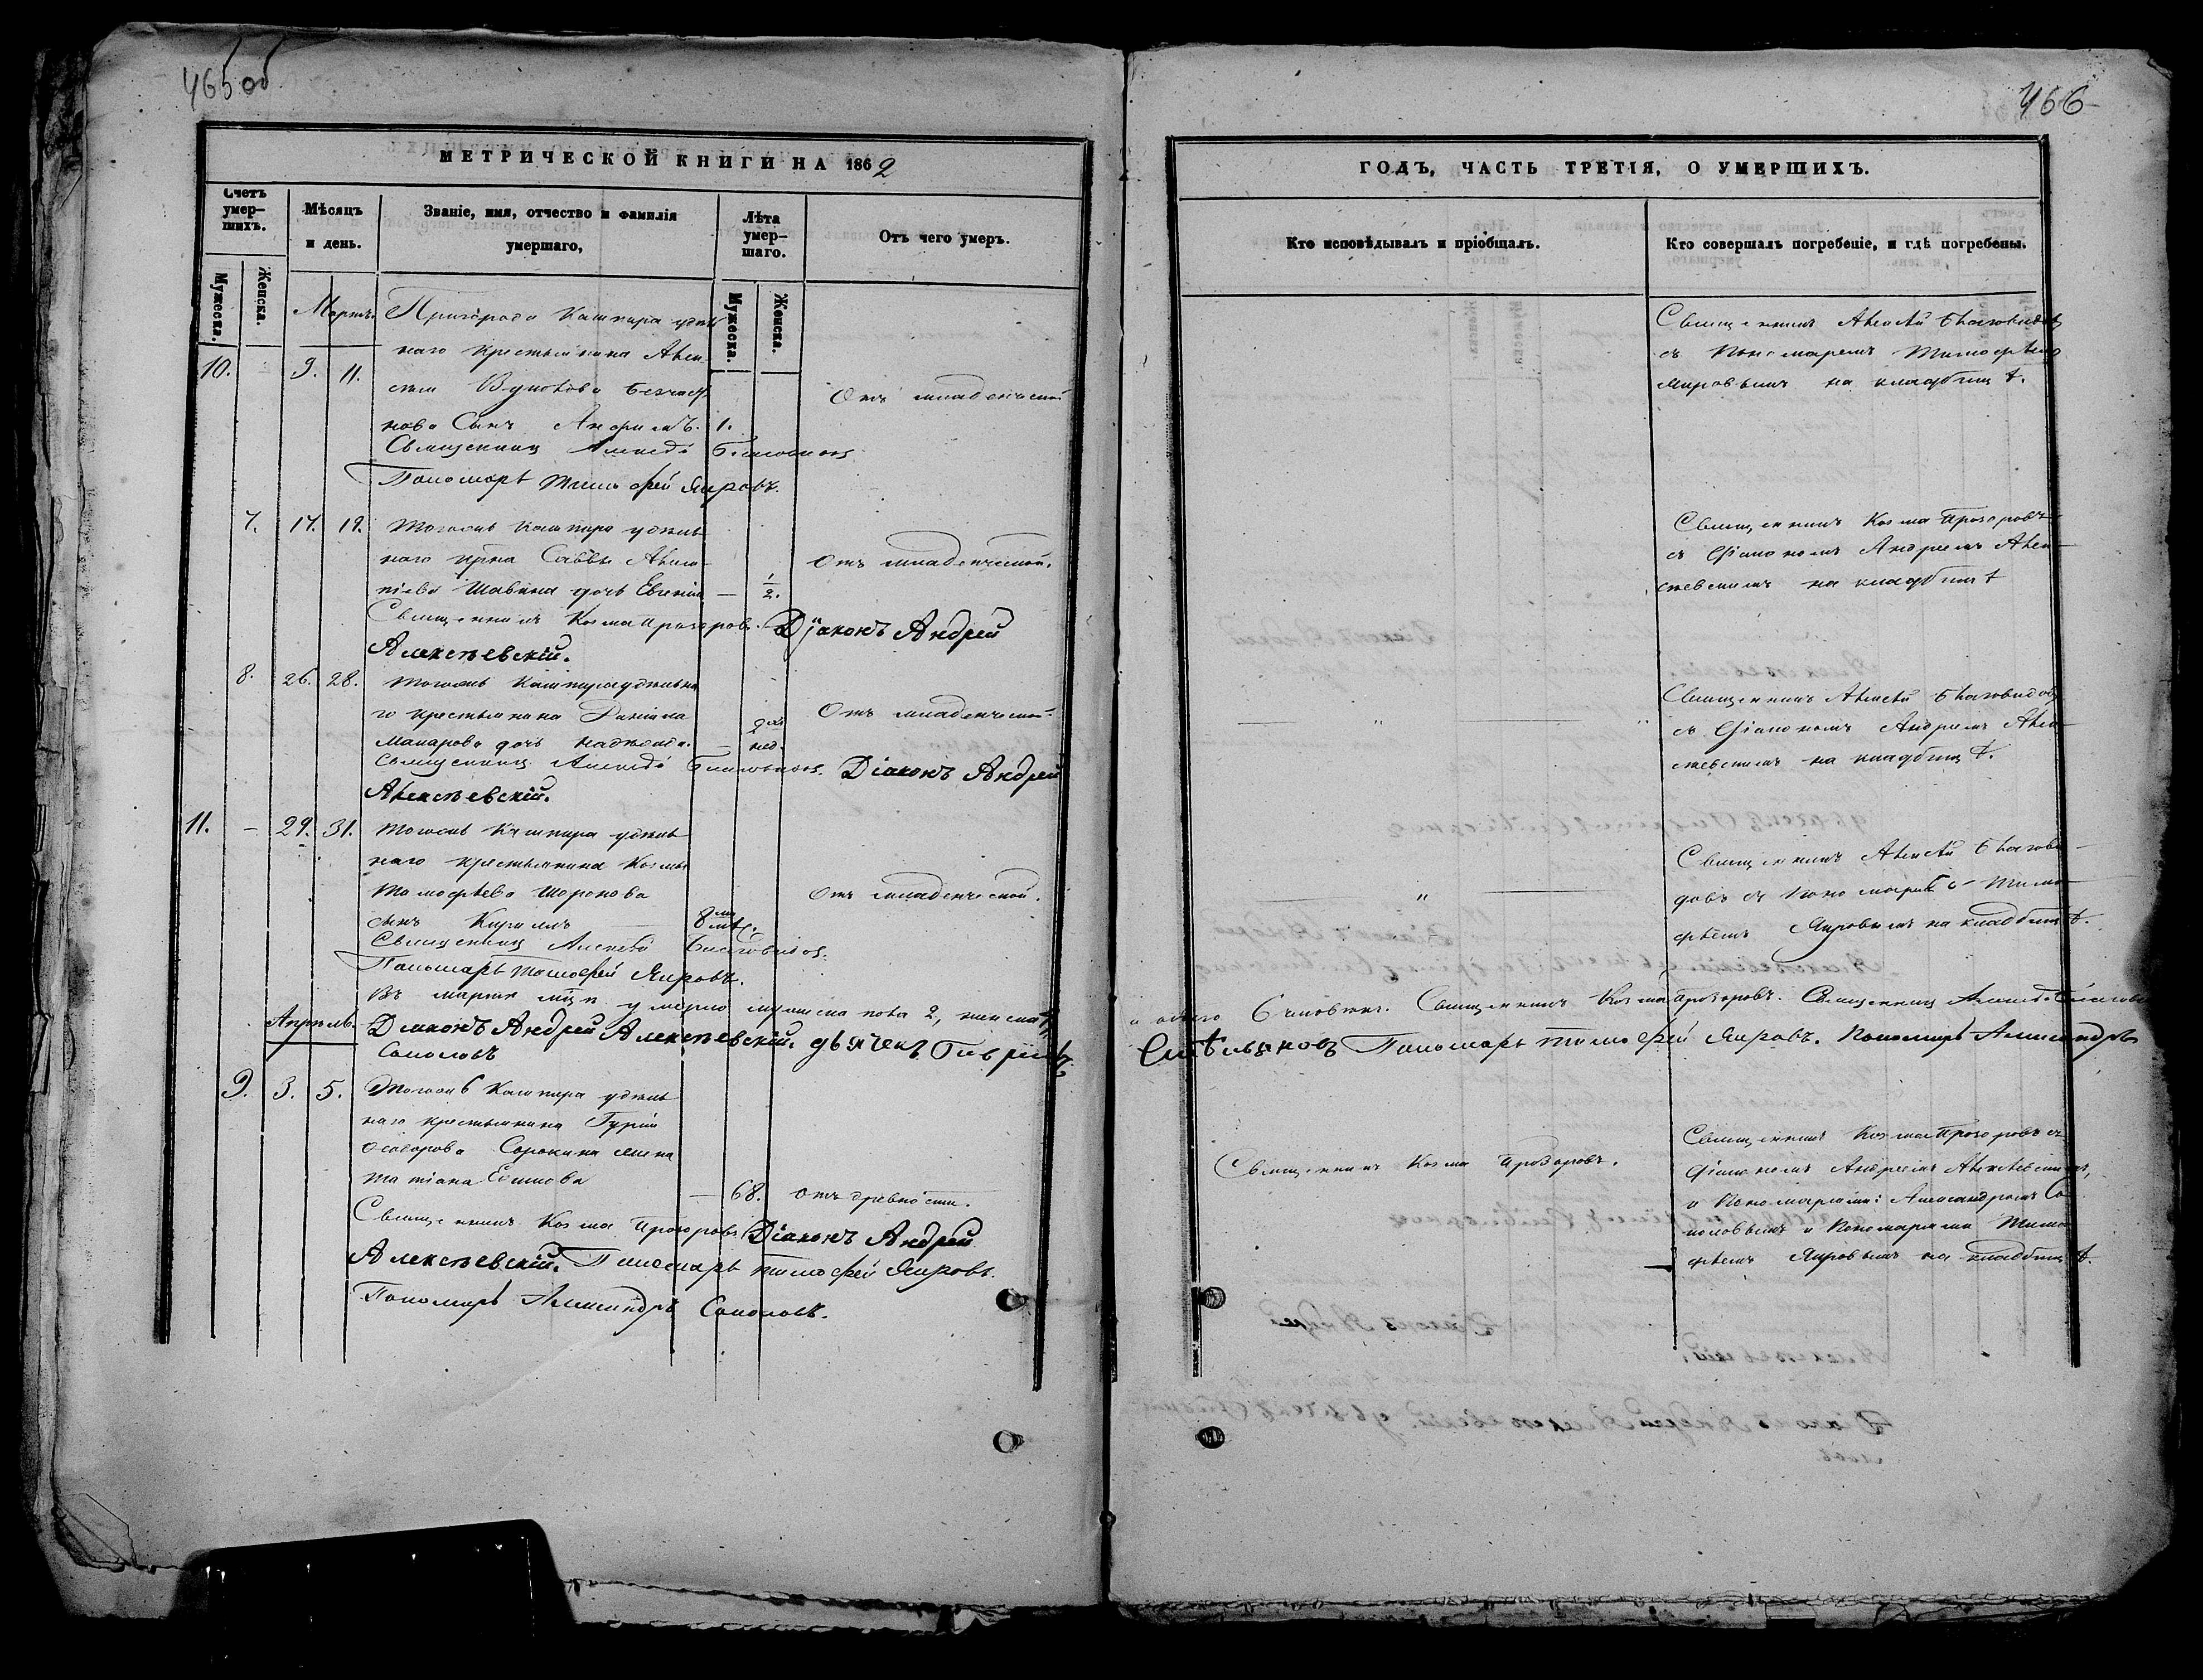 465об
МЕТРИЧЕСКОЙ КНИГИ НА 1862
Счетъ умер-шихъ.
Мѣсяцъ и день.
Званіе, имя, отчество и фамилія умершаго,
Лѣта умер-шаго.
Отъ чего умеръ.
Мужеска.
Женска.
Мужеска.
Женска.
Мартъ.
Пригорода Кашпира удѣль
наго крестьянина Алек
10. 9. 11.
сѣя
Отъ младенческой
нова Сынъ 1.
Священникъ Алексѣй Благовидовъ
Пономарь Тимофей Яировъ.
7. 17. 19. Тогожъ Кашпира удѣль
наго крна Саввы
Отъ младенческой.
Шавина дочь Евгенія — 1/2.
Священникъ Козма Прозоровъ. Діаконъ Андрей
Алексѣевскій.
8. 26. 28. Тогожъ Кашпира удѣльна
го крестьянина Даніила
Отъ младенческой
Макарова дочь Надежда. — 2хъ нед.
Священникъ Алексѣй Благовидовъ. Діаконъ Андрей
Алексѣевскій.
11. – 29. 31. Тогожъ Кашпира удѣль
наго крестьянина Козмы
Тимофѣева
Отъ младенческой.
сынъ Кирилъ 8ми мѣс.
Священникъ Алексѣй Благовидовъ.
Пономарь Тимофей Яировъ.
Въ мартѣ мцѣ умерло мужеска пола 2, женска
Апрѣль.
Діаконъ Андрей Алексѣевскій. дьячекъ Гавріилъ
Соколовъ
9. 3. 5. Тогожъ Кашпира удѣль
наго крестьянина Гурія
Ѳедорова Сорокина жена
Татіана
— 68. отъ древности.
Священникъ Козма Прозоровъ Діаконъ Андрей
Алексѣевскій. Пономарь Тимофей Яировъ.
Пономарь Александръ Соколовъ.
466
ГОДЪ, ЧАСТЬ ТРЕТІЯ, О УМЕРШИХЪ.
Кто исповѣдывалъ и пріобщалъ.
Кто совершалъ погребеніе, и гдѣ погребены.
Священникъ Алексѣй Благовидовъ
съ Пономаремъ Тимофѣемъ
Яировымъ на кладбищѣ.
Священникъ Козма Прозоровъ
съ Діакономъ Андреемъ Алек
сѣевскимъ на кладбищѣ
Священникъ Алексѣй Благовидовъ
съ Діакономъ Андреемъ Алек
сѣевскимъ на кладбищѣ.
Священникъ Алексѣй Благови
довъ съ Пономаремъ Тимо
фѣемъ Яировымъ на кладбищѣ.
и обоего 6 человѣкъ. Священникъ Козма Прозоровъ. Священникъ Алексѣй Благовидовъ
Пономарь Тимофей Яировъ. Пономарь Александръ
Священникъ Козма Прозоровъ.
Священникъ Козма Прозоровъ съ
Діакономъ Андреемъ Алексѣевскимъ,
и Пономарями: Александромъ Со
коловымъ и Пономаремъ Тимо
фѣемъ Яировымъ на кладбищѣ.